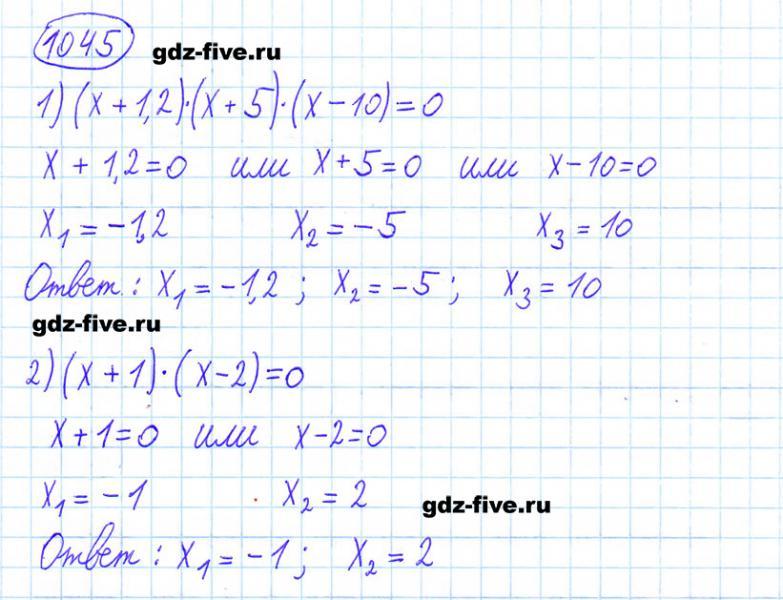 1045 gdz-five.ru
1) (x + 1,2)·(x + 5)·(x – 10) = 0
x + 1,2 = 0 или x + 5 = 0 или x – 10 = 0
x₁ = –1,2 x₂ = –5 x₃ = 10
Ответ: x₁ = –1,2 ; x₂ = –5 ; x₃ = 10
gdz-five.ru
2) (x + 1)·(x – 2) = 0
x + 1 = 0 или x – 2 = 0
x₁ = –1 x₂ = 2
gdz-five.ru
Ответ: x₁ = –1 ; x₂ = 2